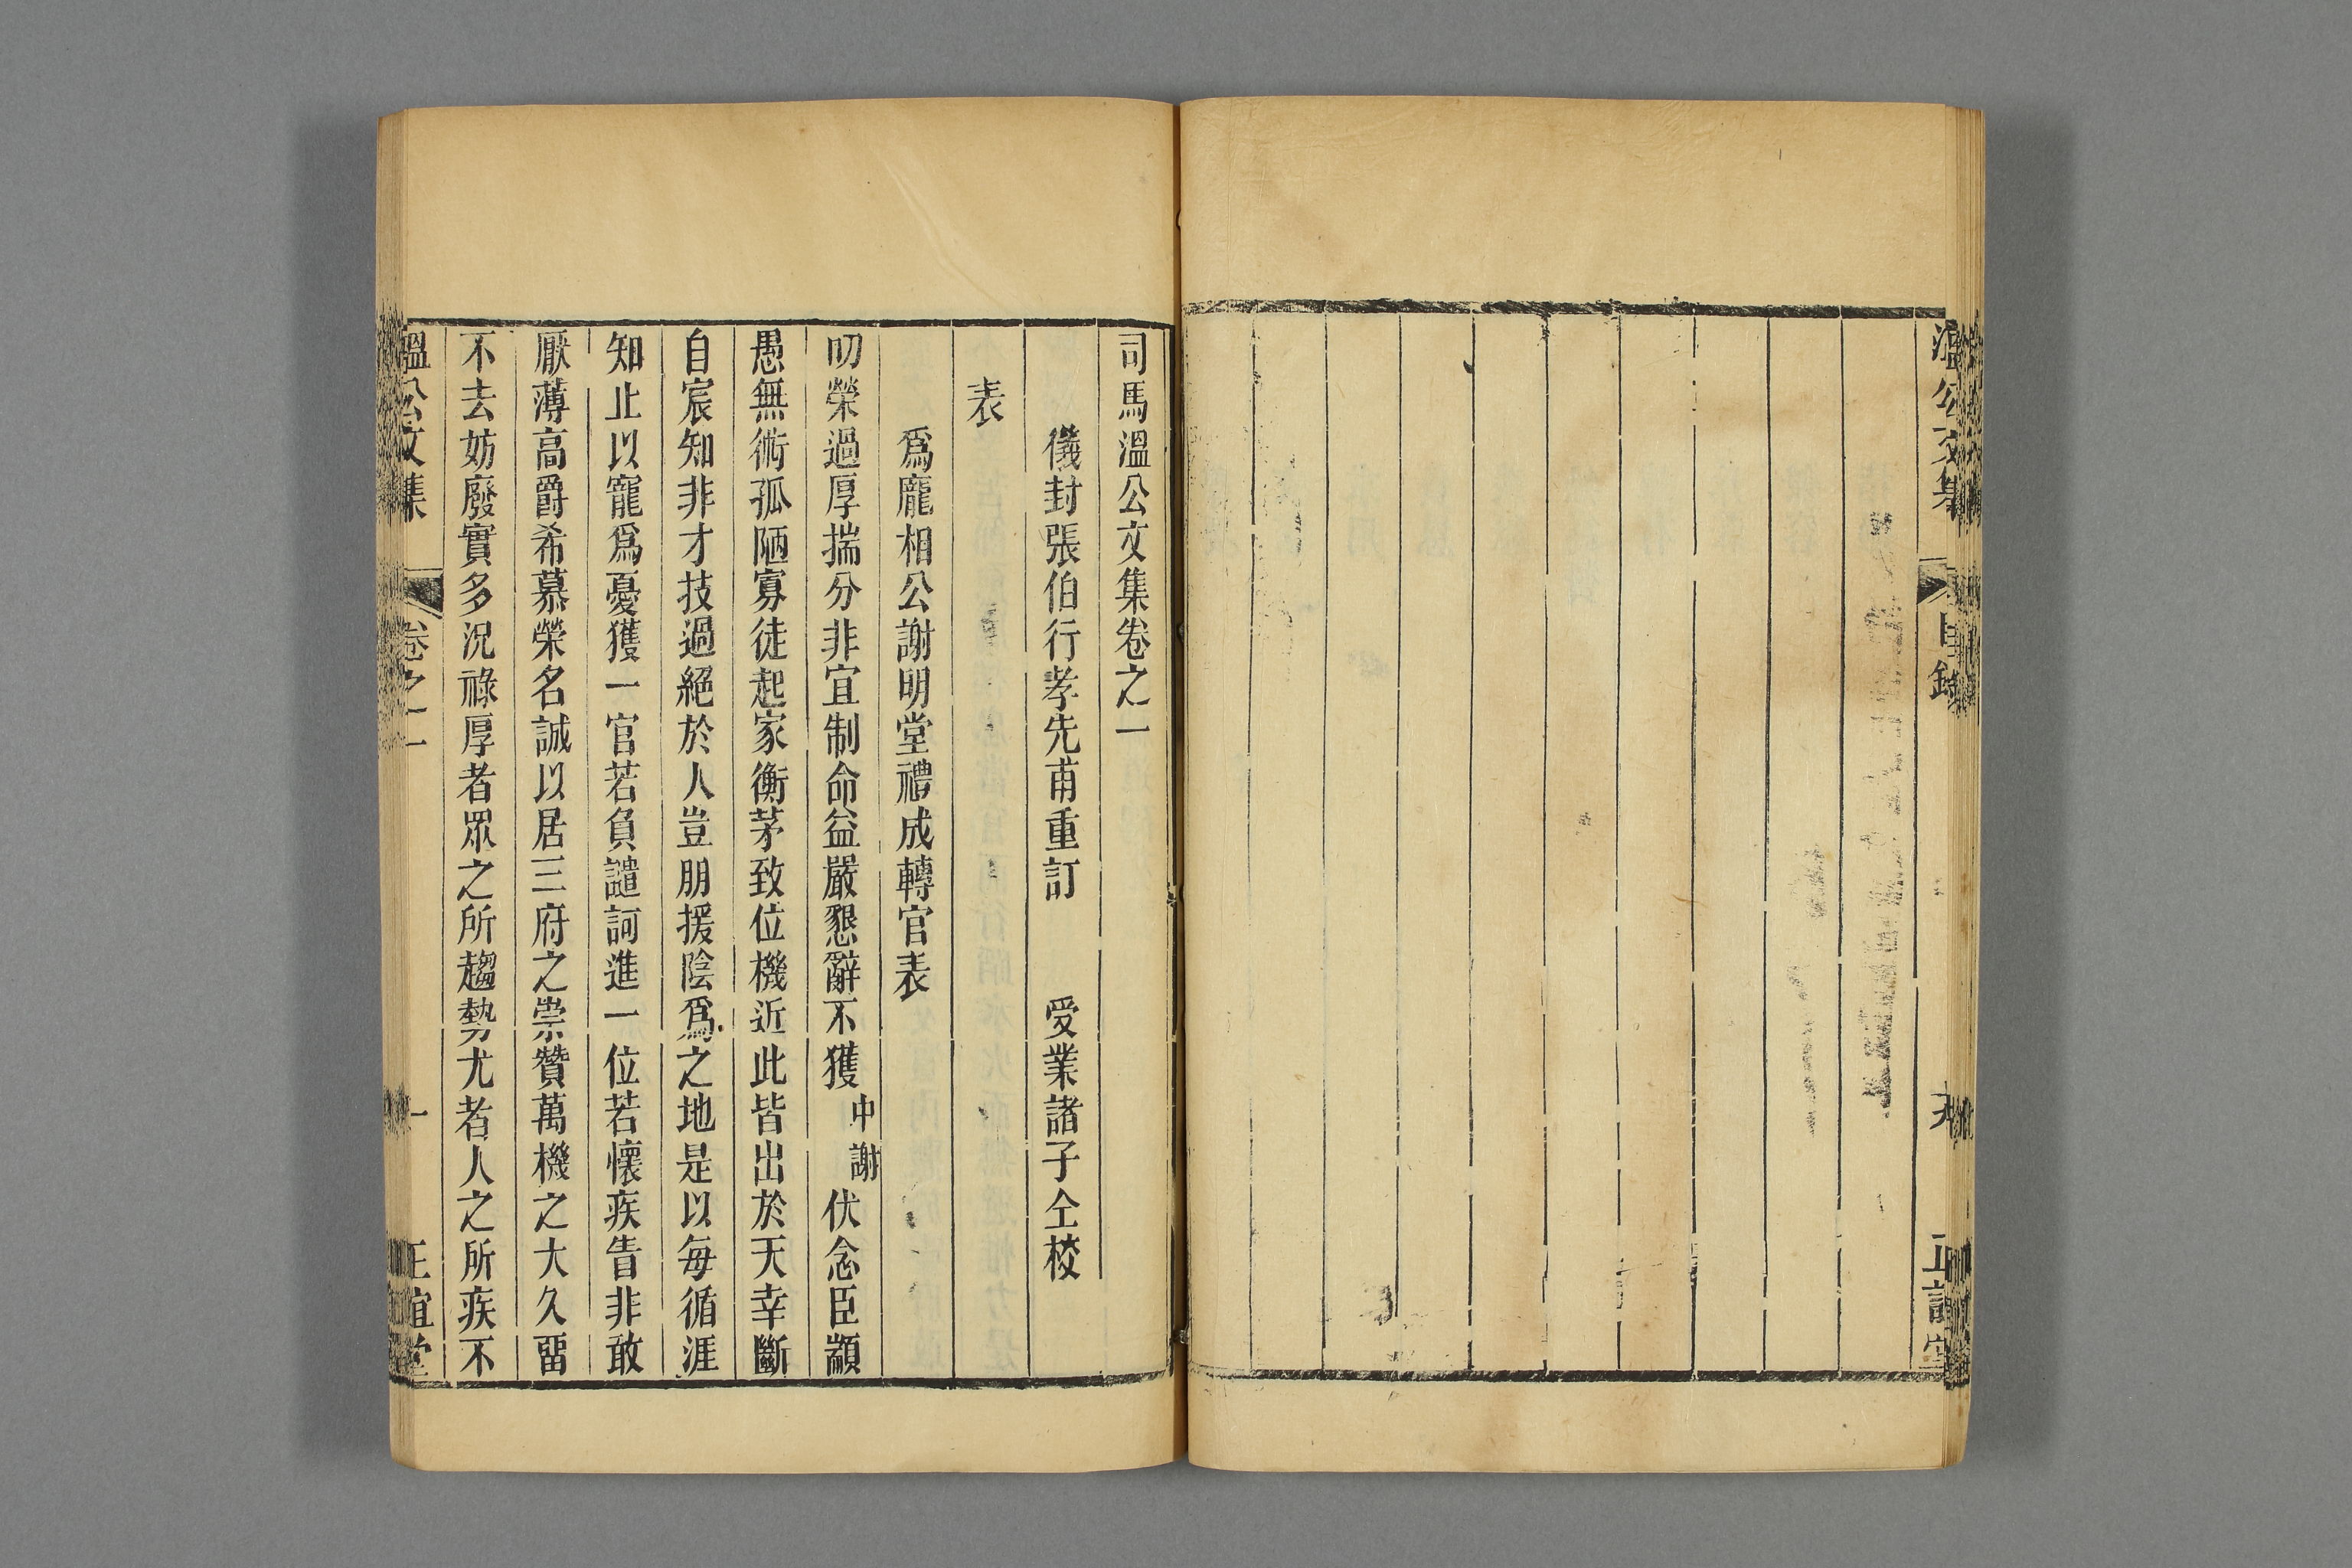 溫公文集 目錄 正誼堂
司馬溫公文集卷之一
儀封張伯行孝先甫重訂 受業諸子仝校
表
爲龐相公謝明堂禮成轉官表
叨榮過厚揣分非宜制命益嚴懇辭不獲中謝伏念臣顓
愚無術孤陋寡徒起家衡茅致位機近此皆出於天幸斷
自宸知非才技過絕於人豈朋援陰爲之地是以每循涯
知止以寵爲憂獲一官若負譴訶進一位若懷疾眚非敢
厭薄高爵希慕榮名誠以居三府之崇贊萬機之大久畱
不去妨廢實多況祿厚者眾之所趨勢尤者人之所疾不
溫公文集 卷之一 一 正誼堂